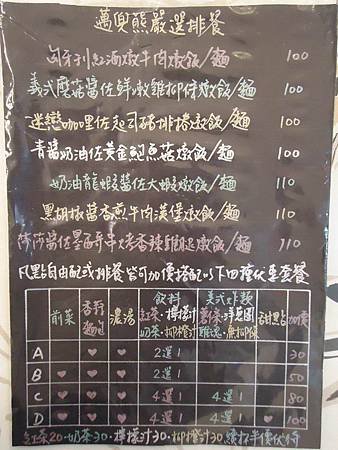 邁兜熊嚴選排餐
匈牙利紅酒燉牛肉燉飯/麵 100
義式蘑菇醬佐鮮嫩雞柳條燉飯/麵 100
迷戀咖哩佐起司豬排捲燉飯/麵 100
青醬奶油佐黃金鮑魚菇燉飯/麵 100
奶油龍蝦醬佐大蝦燉飯/麵 110
黑胡椒醬香煎牛肉漢堡燉飯/麵 110
莎莎醬佐墨西哥烤香辣雞腿燉飯/麵 110
凡點自由配或排餐皆可加價搭配以下四種優惠套餐
前菜 香蒜麵包 濃湯 飲料 紅茶·檸檬汁 奶茶·柳橙汁 美式炸類 薯條·洋蔥圈 雞塊·魚柳條 甜點 加價
A ♥ ♥ 2選1 30
B ♥ ♥ ♥ 2選1 50
C ♥ ♥ ♥ 4選1 4選1 80
D ♥ ♥ ♥ 4選1 4選1 ♥ 100
紅茶20·奶茶30·檸檬汁30·柳橙汁30 續杯半價優待